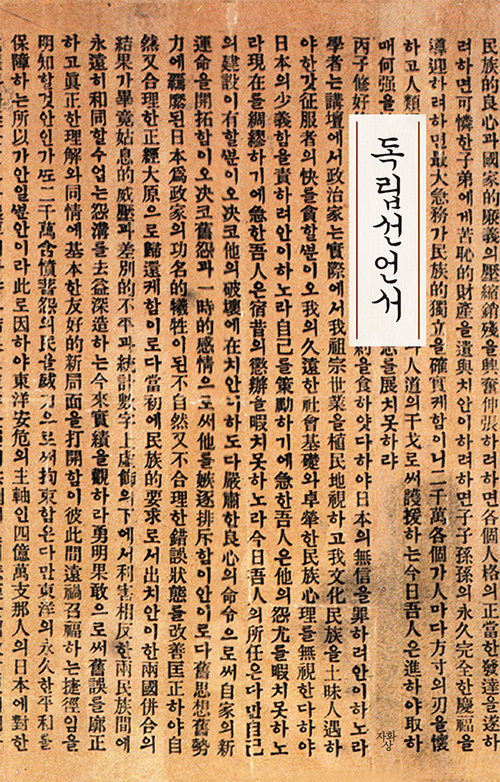 독립선언서
民族的良心과國家的廉義의壓縮銷殘을興奮伸張하려하면各個人格의正當한發達을遂하
려하면可憐한子弟에게苦恥的財産을遺與치안이하려하면子子孫孫의永久完全한慶福을
導迎하려하면最大急務가民族的獨立을確實케함이니二千萬各個가人마다方寸의刃을懷
하고人類 人道의干戈로써護援하는今日吾人은進하야取하
매何强을 展치못하랴
丙子修好 約을食하얏다하야日本의無信을罪하려안이하노라
學者는講壇에서政治家는實際에서我祖宗世業을植民地視하고我文化民族을土昧人遇하
야한갓征服者의快를貪할뿐이오我의久遠한社會基礎와卓犖한民族心理를無視한다하야
日本의少義함을責하려안이하노라自己를策勵하기에急한吾人은他의怨尤를暇치못하노
라現在를綢繆하기에急한吾人은宿昔의懲辦을暇치못하노라今日吾人의所任은다만自己
의建設이有할뿐이오決코他의破壞에在치안이하도다嚴肅한良心의命令으로써自家의新
運命을開拓함이오決코舊怨과一時的感情으로써他를嫉逐排斥함이안이로다舊思想舊勢
力에羈縻된日本爲政家의功名的犧牲이된不自然又不合理한錯誤狀態를改善匡正하야自
然又合理한正經大原으로歸還케함이로다當初에民族的要求로서出치안이한兩國倂合의
結果가畢竟姑息的威壓과差別的不平과統計數字上虛飾의下에서利害相反한兩民族間에
永遠히和同할수업는怨溝를去益深造하는今來實績을觀하라勇明果敢으로써舊誤를廓正
하고眞正한理解와同情에基本한友好的新局面을打開함이彼此間遠禍召福하는捷徑임을
明知할것안인가또二千萬含憤蓄怨의民을威力으로써拘束함은다만東洋의永久한平和를
保障하는所以가안일뿐안이라此로因하야東洋安危의主軸인四億萬支那人의日本에對한
자화상